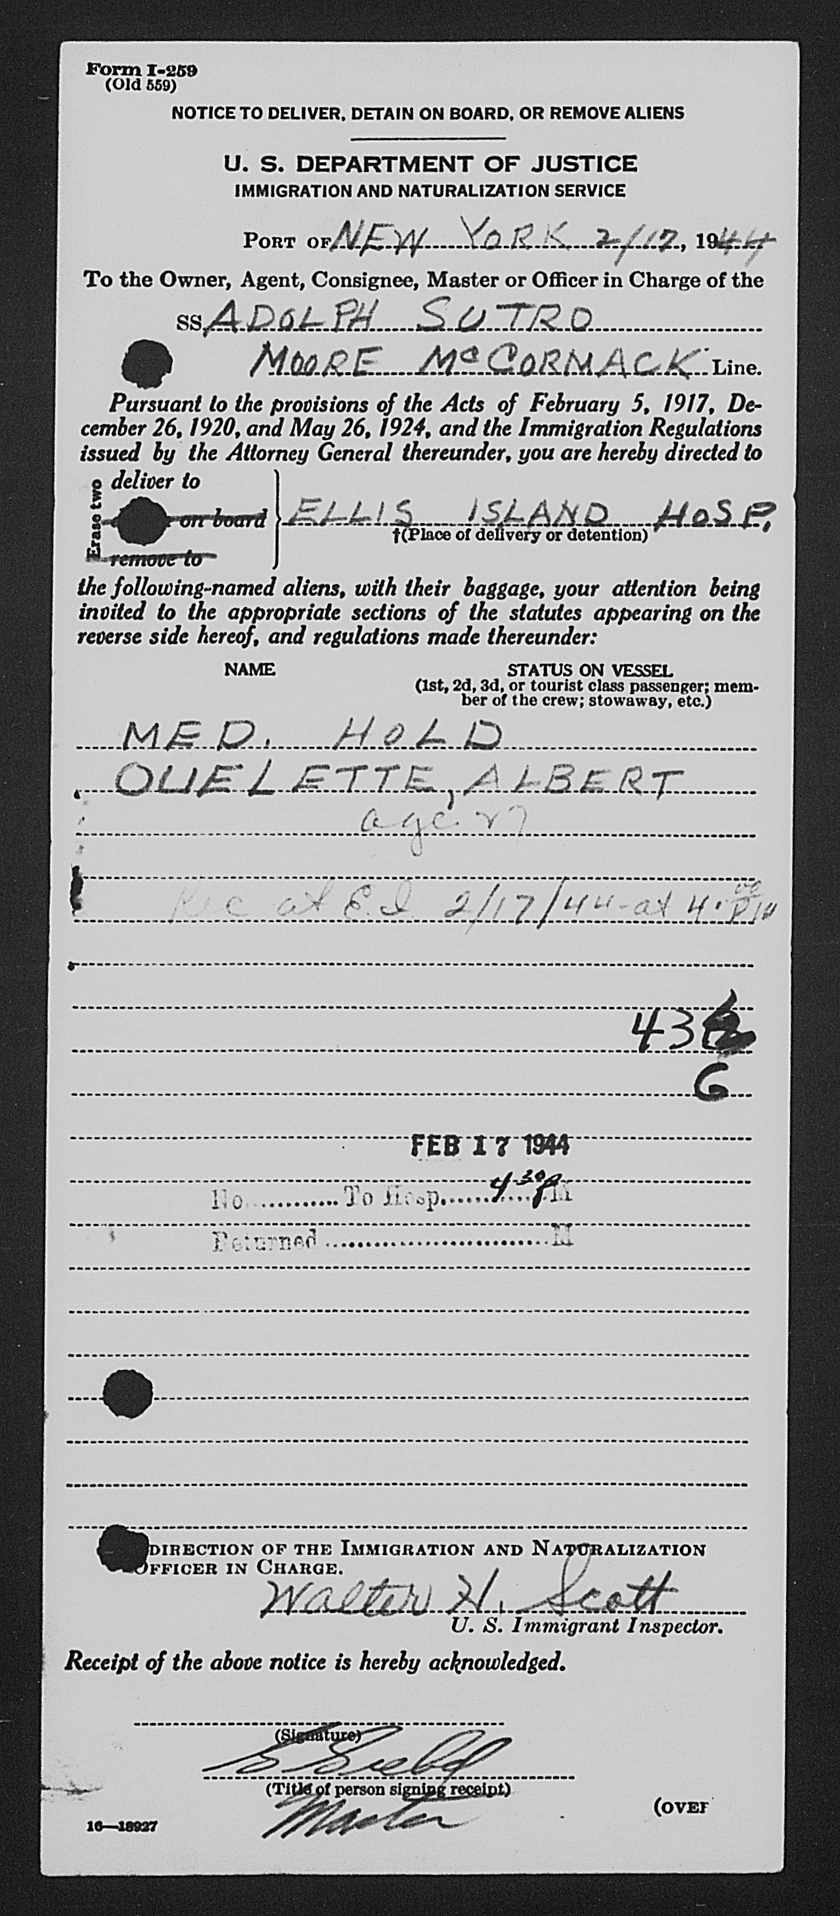 Form I-259
(Old 559)
NOTICE TO DELIVER, DETAIN ON BOARD, OR REMOVE ALIENS
U. S. DEPARTMENT OF JUSTICE
IMMIGRATION AND NATURALIZATION SERVICE
PORT OF NEW YORK 2/17, 1944
To the Owner, Agent, Consignee, Master or Officer in Charge of the
SS ADOLPH SUTRO
MOORE McCORMACK Line.
Pursuant to the provisions of the Acts of February 5, 1917, De-
cember 26, 1920, and May 26, 1924, and the Immigration Regulations
issued by the Attorney General thereunder, you are hereby directed to
Erase two
deliver to
on board ELLIS ISLAND HOSP.
†(Place of delivery or detention)
remove to
the following-named aliens, with their baggage, your attention being
invited to the appropriate sections of the statutes appearing on the
reverse side hereof, and regulations made thereunder:
NAME STATUS ON VESSEL
(1st, 2d, 3d, or tourist class passenger; mem-
ber of the crew; stowaway, etc.)
MED. HOLD
OUELETTE, ALBERT
age 27
Rec at E.I 2/17/44 - at 4:00 PM
43
6
FEB 17 1944
No. To Hosp. 4 30 P M
Returned M
DIRECTION OF THE IMMIGRATION AND NATURALIZATION
OFFICER IN CHARGE.
Walter H. Scott
U. S. Immigrant Inspector.
Receipt of the above notice is hereby acknowledged.
(Signature)
(Title of person signing receipt)
Master
16—18927 (OVER